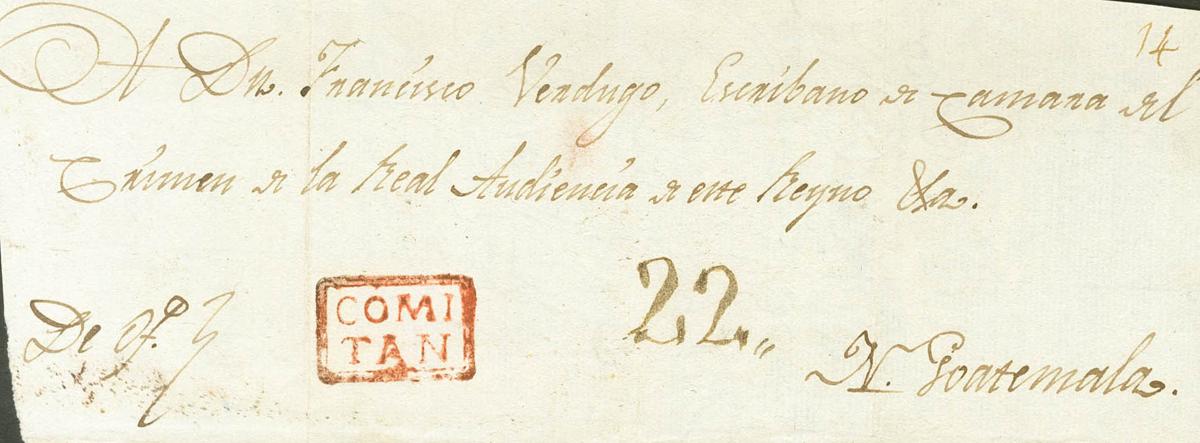 14
A Dn. Francisco Verdugo, Escribano de Camara del
Crimen de la Real Audiencia de este Reyno &a.
De ofo.
COMI
TAN
22,,
N. Goatemala.